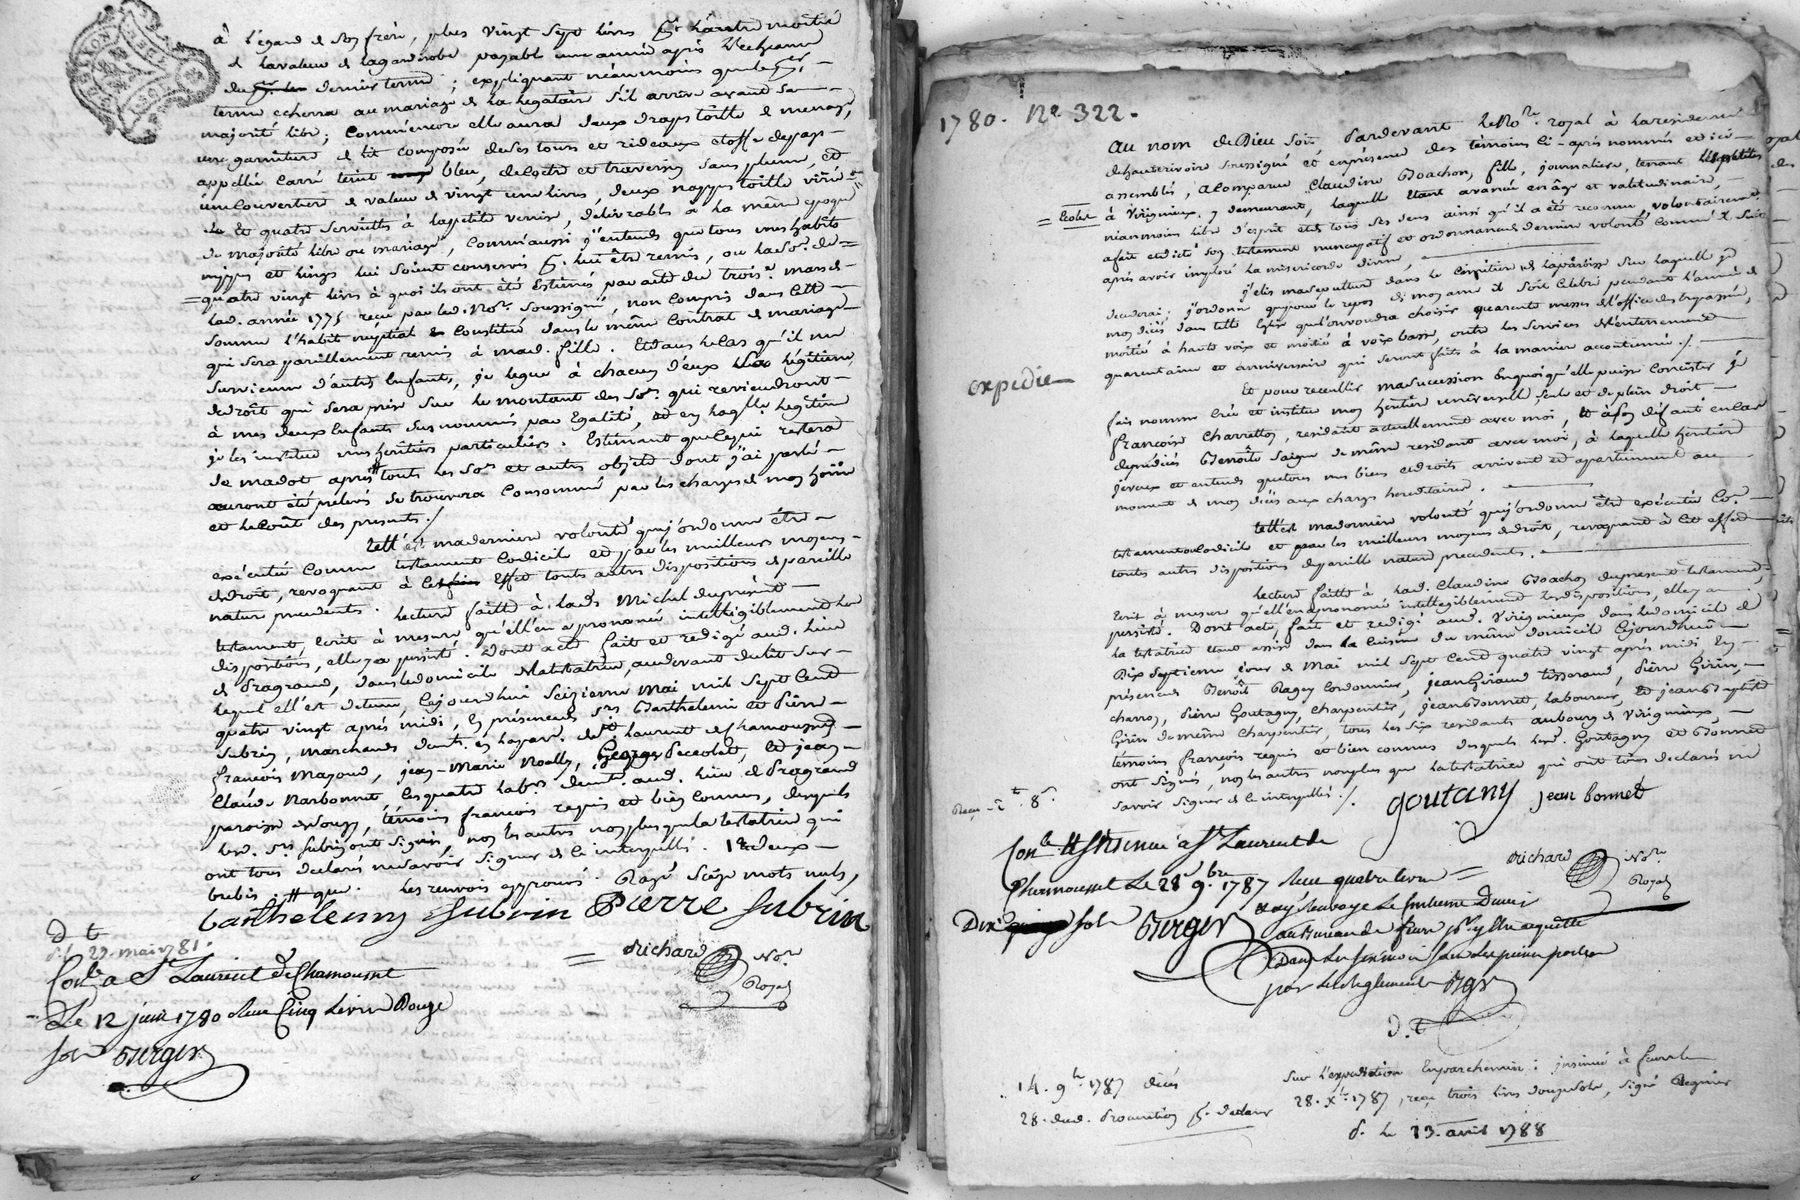 à l'égard de son frère, plus vingt sept livres pr. l'autre moitié
de la valeur de la garderobe payable une année après l'echeance
du dernier terme ; expliquant néanmoins que le pr.
terme echerra au mariage de la legataire s'il arrive avant sa
majorité libre ; comm'encore elle aura deux draps toille de menage,
une garniture de lit composée de ses tours et rideaux etoffe du pays
appellée carré teint bleu, de coetre et traversin sans plume, et
une couverture de valeur de vingt une livres, deux nappes toille
et quatre serviettes à la petite venise, delivrables à la même epoque
de majorité libre ou mariage, comm'aussi j'entends que tous mes habits
nippes et linges lui soient conservés pr. lui être remis, ou la so. de
quatre vingt livres à quoi ils ont été estimés par acte du trois mars de
lad. année 1775 reçu par led. Nore. soussigné, non compris dans cette
somme l'habit nuptial constitué dans le même contrat de mariage
qui sera pareillement remis à mad. fille. Et dans le cas qu'il me
survienne d'autres enfants, je legue à chacun d'eux la légitime
de droit qui sera prise sur le montant des so. qui reviendront
à mes deux enfants susnommés par egalité, et en laqlle. legitime
je les institue mes heritiers particuliers. Estimant que ce qui restera
de ma dot après tout les so. et autres objets dont j'ai parlé
auront été prélevés se trouvera consommé par les charges de mon hoirie
et le coût des presents./
Tell'est ma derniere volonté que j'ordonne être
exécutée comme testament codicile et par les meilleurs moyens
de droit, revoquant à cet effet touts autres dispositions de pareille
nature precedents. Lecture faitte à lade. Michel du présent
testament, ecrit à mesure qu'ell'en a prononcé intelligiblement les
dispositions, elle y a persisté. Dont acte fait et redigé aud. lieu
de Pragrand, dans le domicile de la testatrice, au devant du lit sur
lequel ell'est detenue, cejourdhui seizieme mai mil sept cent
quatre vingt après midi, en présence de srs Barthelemi et Pierre
Subrin, marchands demts. en la par. de st laurent de chamousset
françois Mazaud, jean-Marie Noally, George Pecolet, et jean
Claude Narbonnet, les quatre labrs. demts. aud. lieu de Pragrand
paroisse de Souzy, témoins françois requis et bien connus, desquels
lesd. srs Subrin ont signé, non les autres non plus que la testatrice qui
ont tous declarés ne savoir signer de ce interpellés. 
 que. les renvois approuvés. Rayé seize mots nuls,
barthelemy Subrin Pierre Subrin
d t
d. l. 23. mai 1781.
Conlé a St. Laurent de Chamousset
Le 12 juin 1780 Reçu Cinq Livres Douze
sols Berger
= Richard Nore.
Royal
1780. No. 322.
au nom de Dieu soit, Pardevant le Nore. royal à la residence
de hauterivoire soussigné et en présence des témoins ci-après nommés et ici
assemblés, a comparue Claudine Goachon, fille, journaliere, tenant les petites
= Ecoles à Virigneux, y demeurant, laquelle etant avancée en âge et valitudinaire,
néanmoins libre d'esprit et de tous ses sens ainsi qu'il a été reconnu, volontairement
a fait et dicté son testament nuncupatif et ordonnance de derniere volonté comme il suit
après avoir imploré la misericorde divine,
j'elis ma sepulture dans le cimetiere de la paroisse sur laquelle je
decederai ; j'ordonne que pour le repos de mon ame il soit celebré pendant l'année de
mon décès dans tell'eglise que l'on voudra choisir quarante messes de l'office des trepassés,
moitié à haute voix et moitié à voix basse, outre les services d'enterrement
quarantaine et anniversaire qui seront faits à la maniere accoutumée ./.
expédié
Et pour recuellir ma succession en quoi qu'elle puisse consister je
fais nomme crée et institue mon heritiere universelle seule et de plein droit
françoise Charretton, residante actuellement avec moi, et à son défaut en cas
de prédécès Benoite Saigne de même residant avec moi, à laquelle heritiere
je veux et entends que tous mes biens et droits arrivent et apartiennent au
moment de mon décès aux charges hereditaires.
tell'est ma derniere volonté que j'ordonne être exécutée co.
testament ou codicile et par les meilleurs moyens de droit, revoquant à cet effet
toutes autres dispositions de pareille nature precedents.
Lecture faitte à lad. Claudine Goachon du present testament,
ecrit à mesure qu'ell'en a prononcé intelligiblement les dispositions, elle y a
persisté. Dont acte, fait et redigé aud. Virigneux dans le domicile de
la testatrice etant assise dans la cuisine du même domicile cejourdhui
Dix septieme jour de Mai mil sept cent quatre vingt après midi, en
présence de Benoît Ragey cordonnier, jean Giraud tisserand, Pierre Girin,
charron, Pierre Goutagny, charpentier, jean Bonnet, laboureur, et jean Baptiste
Girin de même charpentier, tous les six residants au bourg de Virigneux,
témoins françois requis et bien connus desquels lesd. Goutagny et Bonnet
ont signé, non les autres non plus que la testatrice qui ont tous declarés ne
savoir signer de ce interpellés ./. goutany jean bonnet
Conlé & à St Laurent de
Chamousset Le 28 9.bre 1787 Reçu quatre livres
Dix sols Berger
= Richard Nore.
Royal
au Bureau de feurs
par le Reglement Bgr
d. t
14. 9bre 1787 décès
28. dud. 
Sur l'expédition en parchemin : insinué à feurs le
28. xbre 1787, reçu trois livres douze sols, signé Regnier
d. le 23. avril 1788